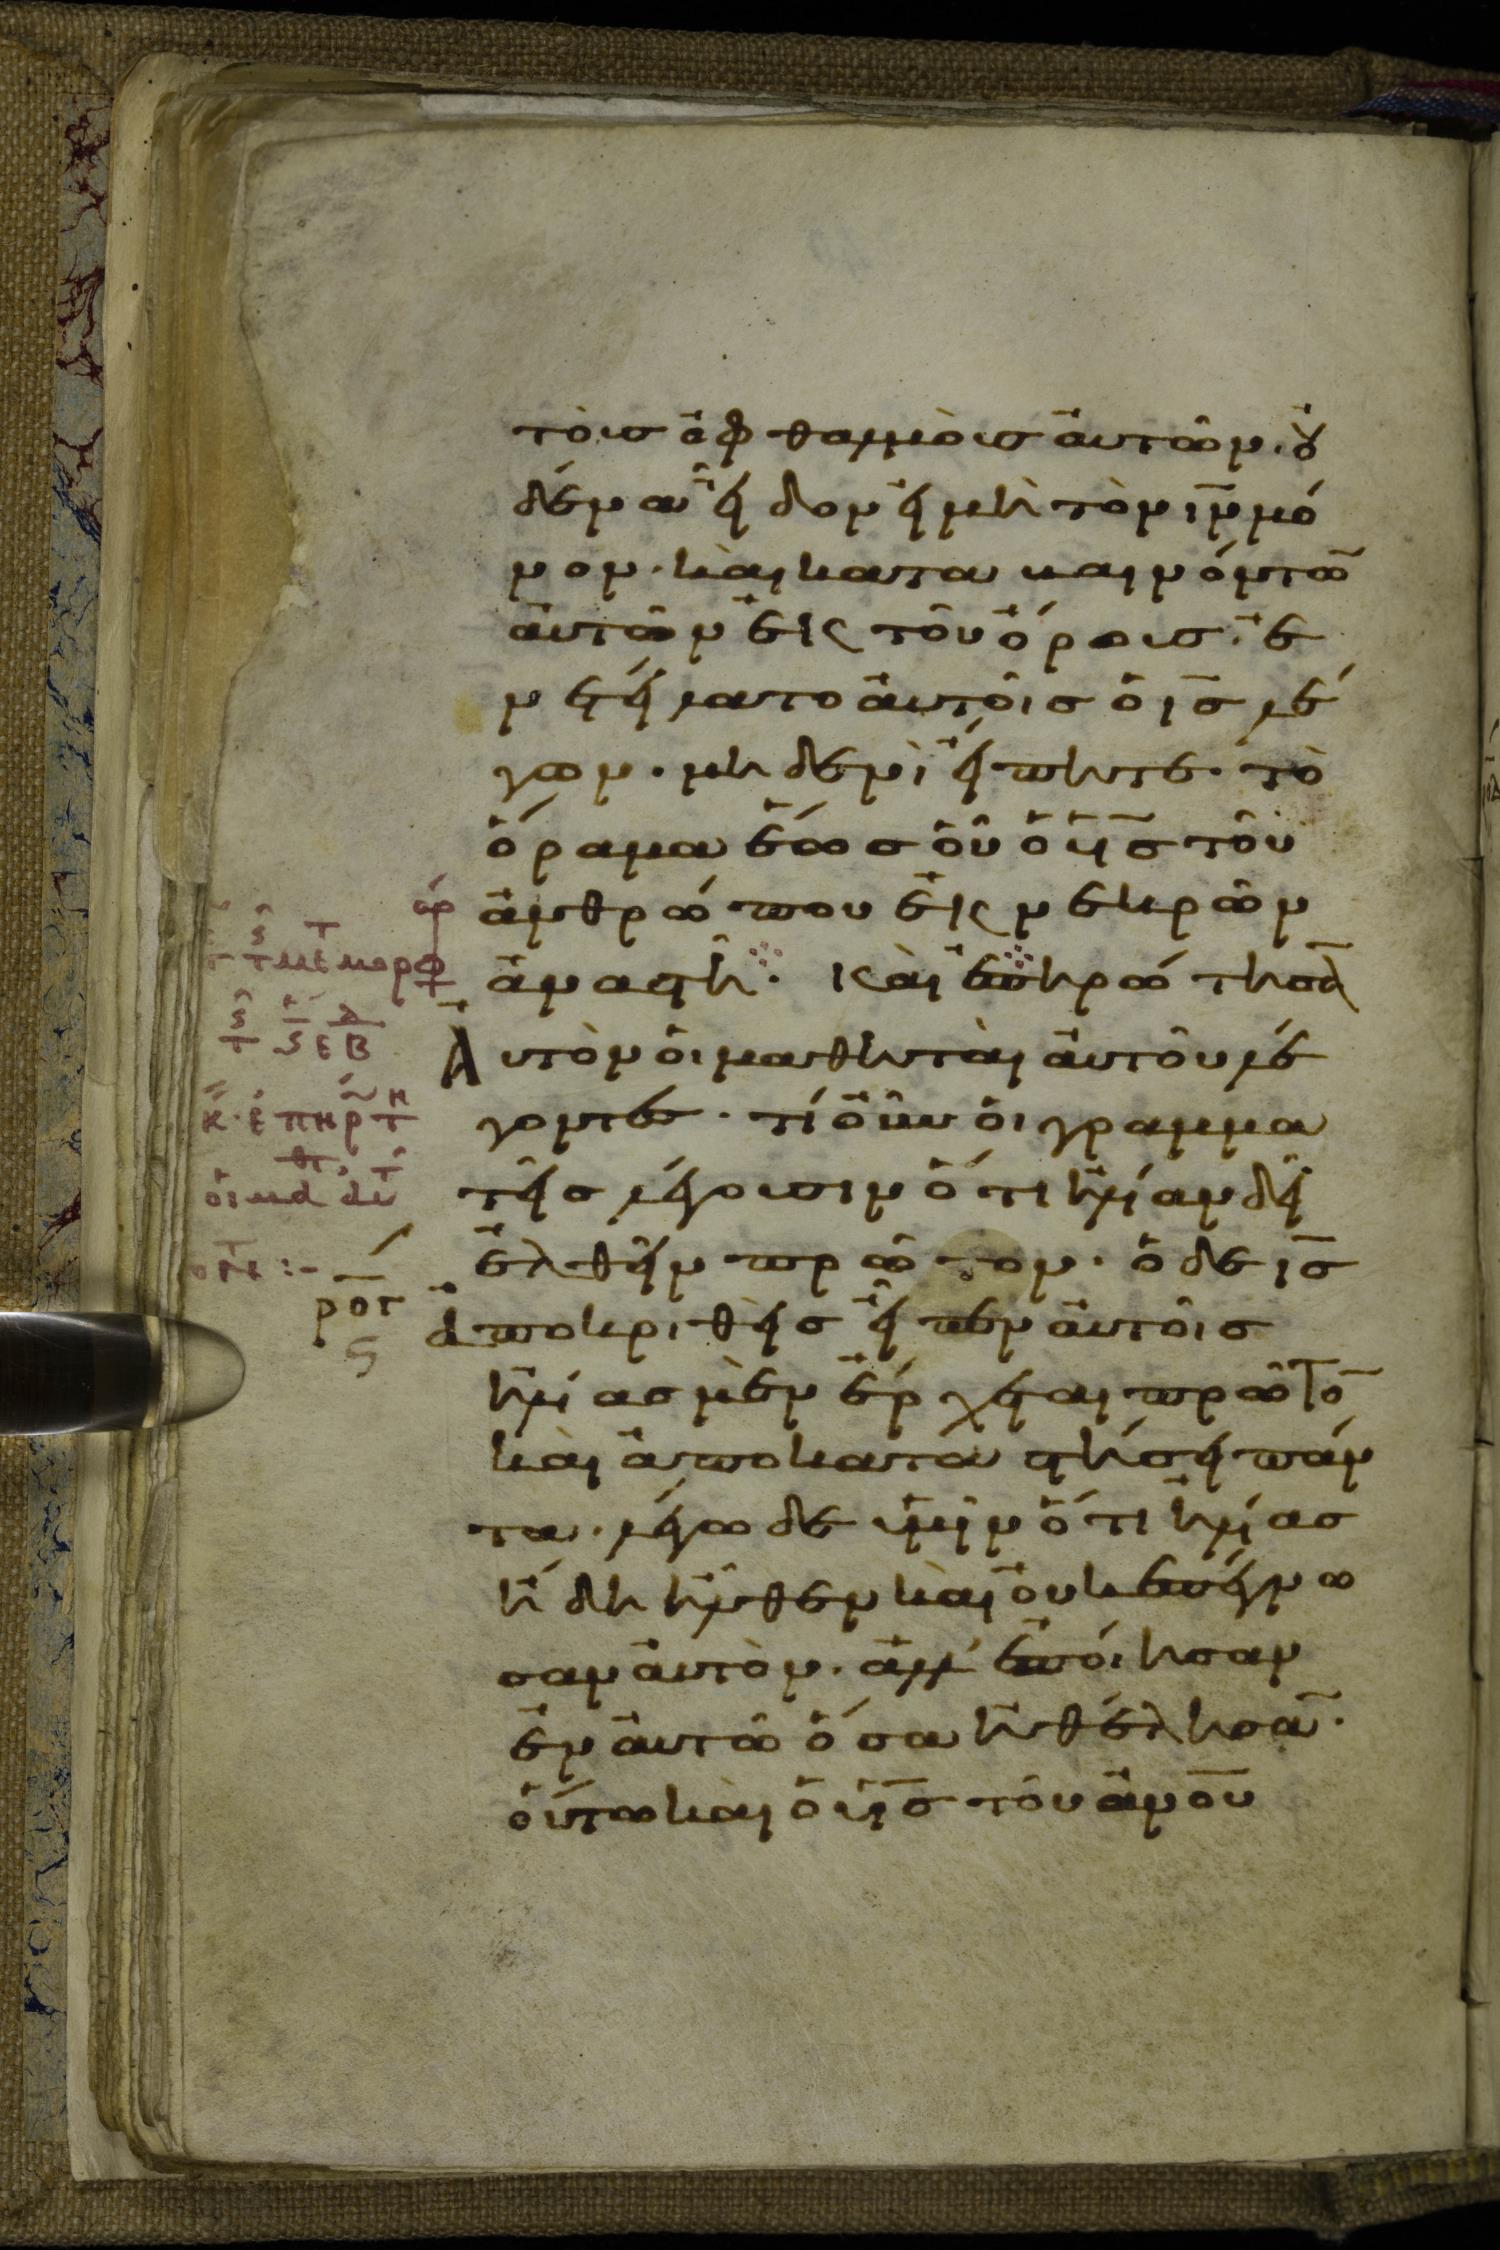 τὸις ὀφθαλμὸις ἀυτῶν. ȣ̓
δένα εἶδον εἰ μὴ τὸν ιν̅ μό
νον. κὰι καταβαινόντω̅
ἀυτῶν ἐις τοῦ ὄροις. ἐ
νετείλατο ἀυτοῖς ὁ ις̅ λέ
γων. μηδενὶ εἴπητε. τὸ
ὅραμα ἕως οὗ ὁ υἱς̅ τοῦ
ἀνθρώπου ἐις νεκρῶν
ἀναστῆ. κὰι ἐπηρώτησα̅
Ἀυτὸν ὁι μαθηται ἀυτοῦ λέ
γοντες. τί οὖν ὁι γραμμα
τεῖς λέγουσιν ὅτι ἡλίαν δεῖ
ἐλθεῖν πρῶτον. ὁ δε ις̅
ἀποκριθεὶς εἶπεν ἀυτοῖς
ἡλίας μὲν ἔρχεται πρῶτο̅
κὰι ἀποκαταστήσει πάν
τα. λέγω δε ὑμῖν ὅτι ἡλίας
ἤδη ἦλθεν κὰι ὀυκ ἐπέγνω
σαν ἀυτὸν. ἀλλ' ἐποίησαν
ἐν ἀυτῶ ὅσα ἠθέλησα̅.
ὅυτω κὰι ὁ υἱς̅ τοῦ ἀνο̅υ̅
ροτ̅
ς